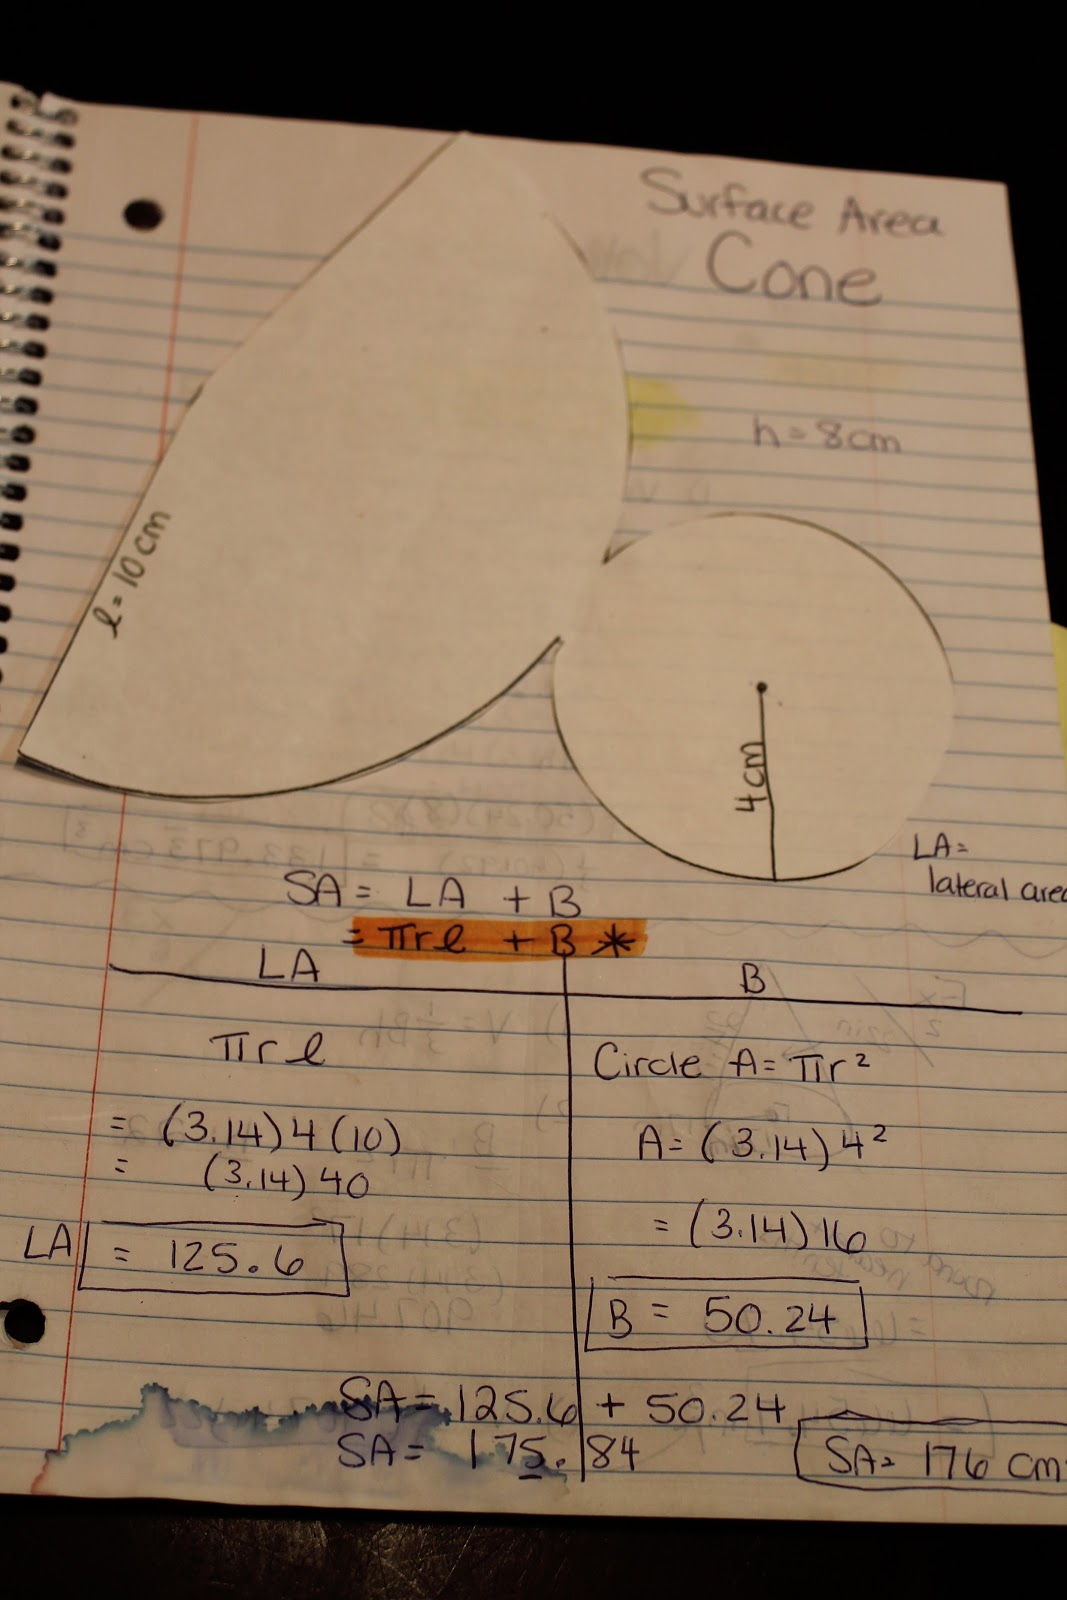 Surface Area
Cone
h = 8cm
l = 10 cm
4cm
LA =
lateral area
SA = LA + B
= πrl + B *
LA
B
πrl
= (3.14) 4 (10)
= (3.14) 40
LA = 125.6
Circle A = πr²
A = (3.14) 4²
= (3.14) 16
B = 50.24
SA = 125.6 + 50.24
SA = 175.84
SA = 176 cm